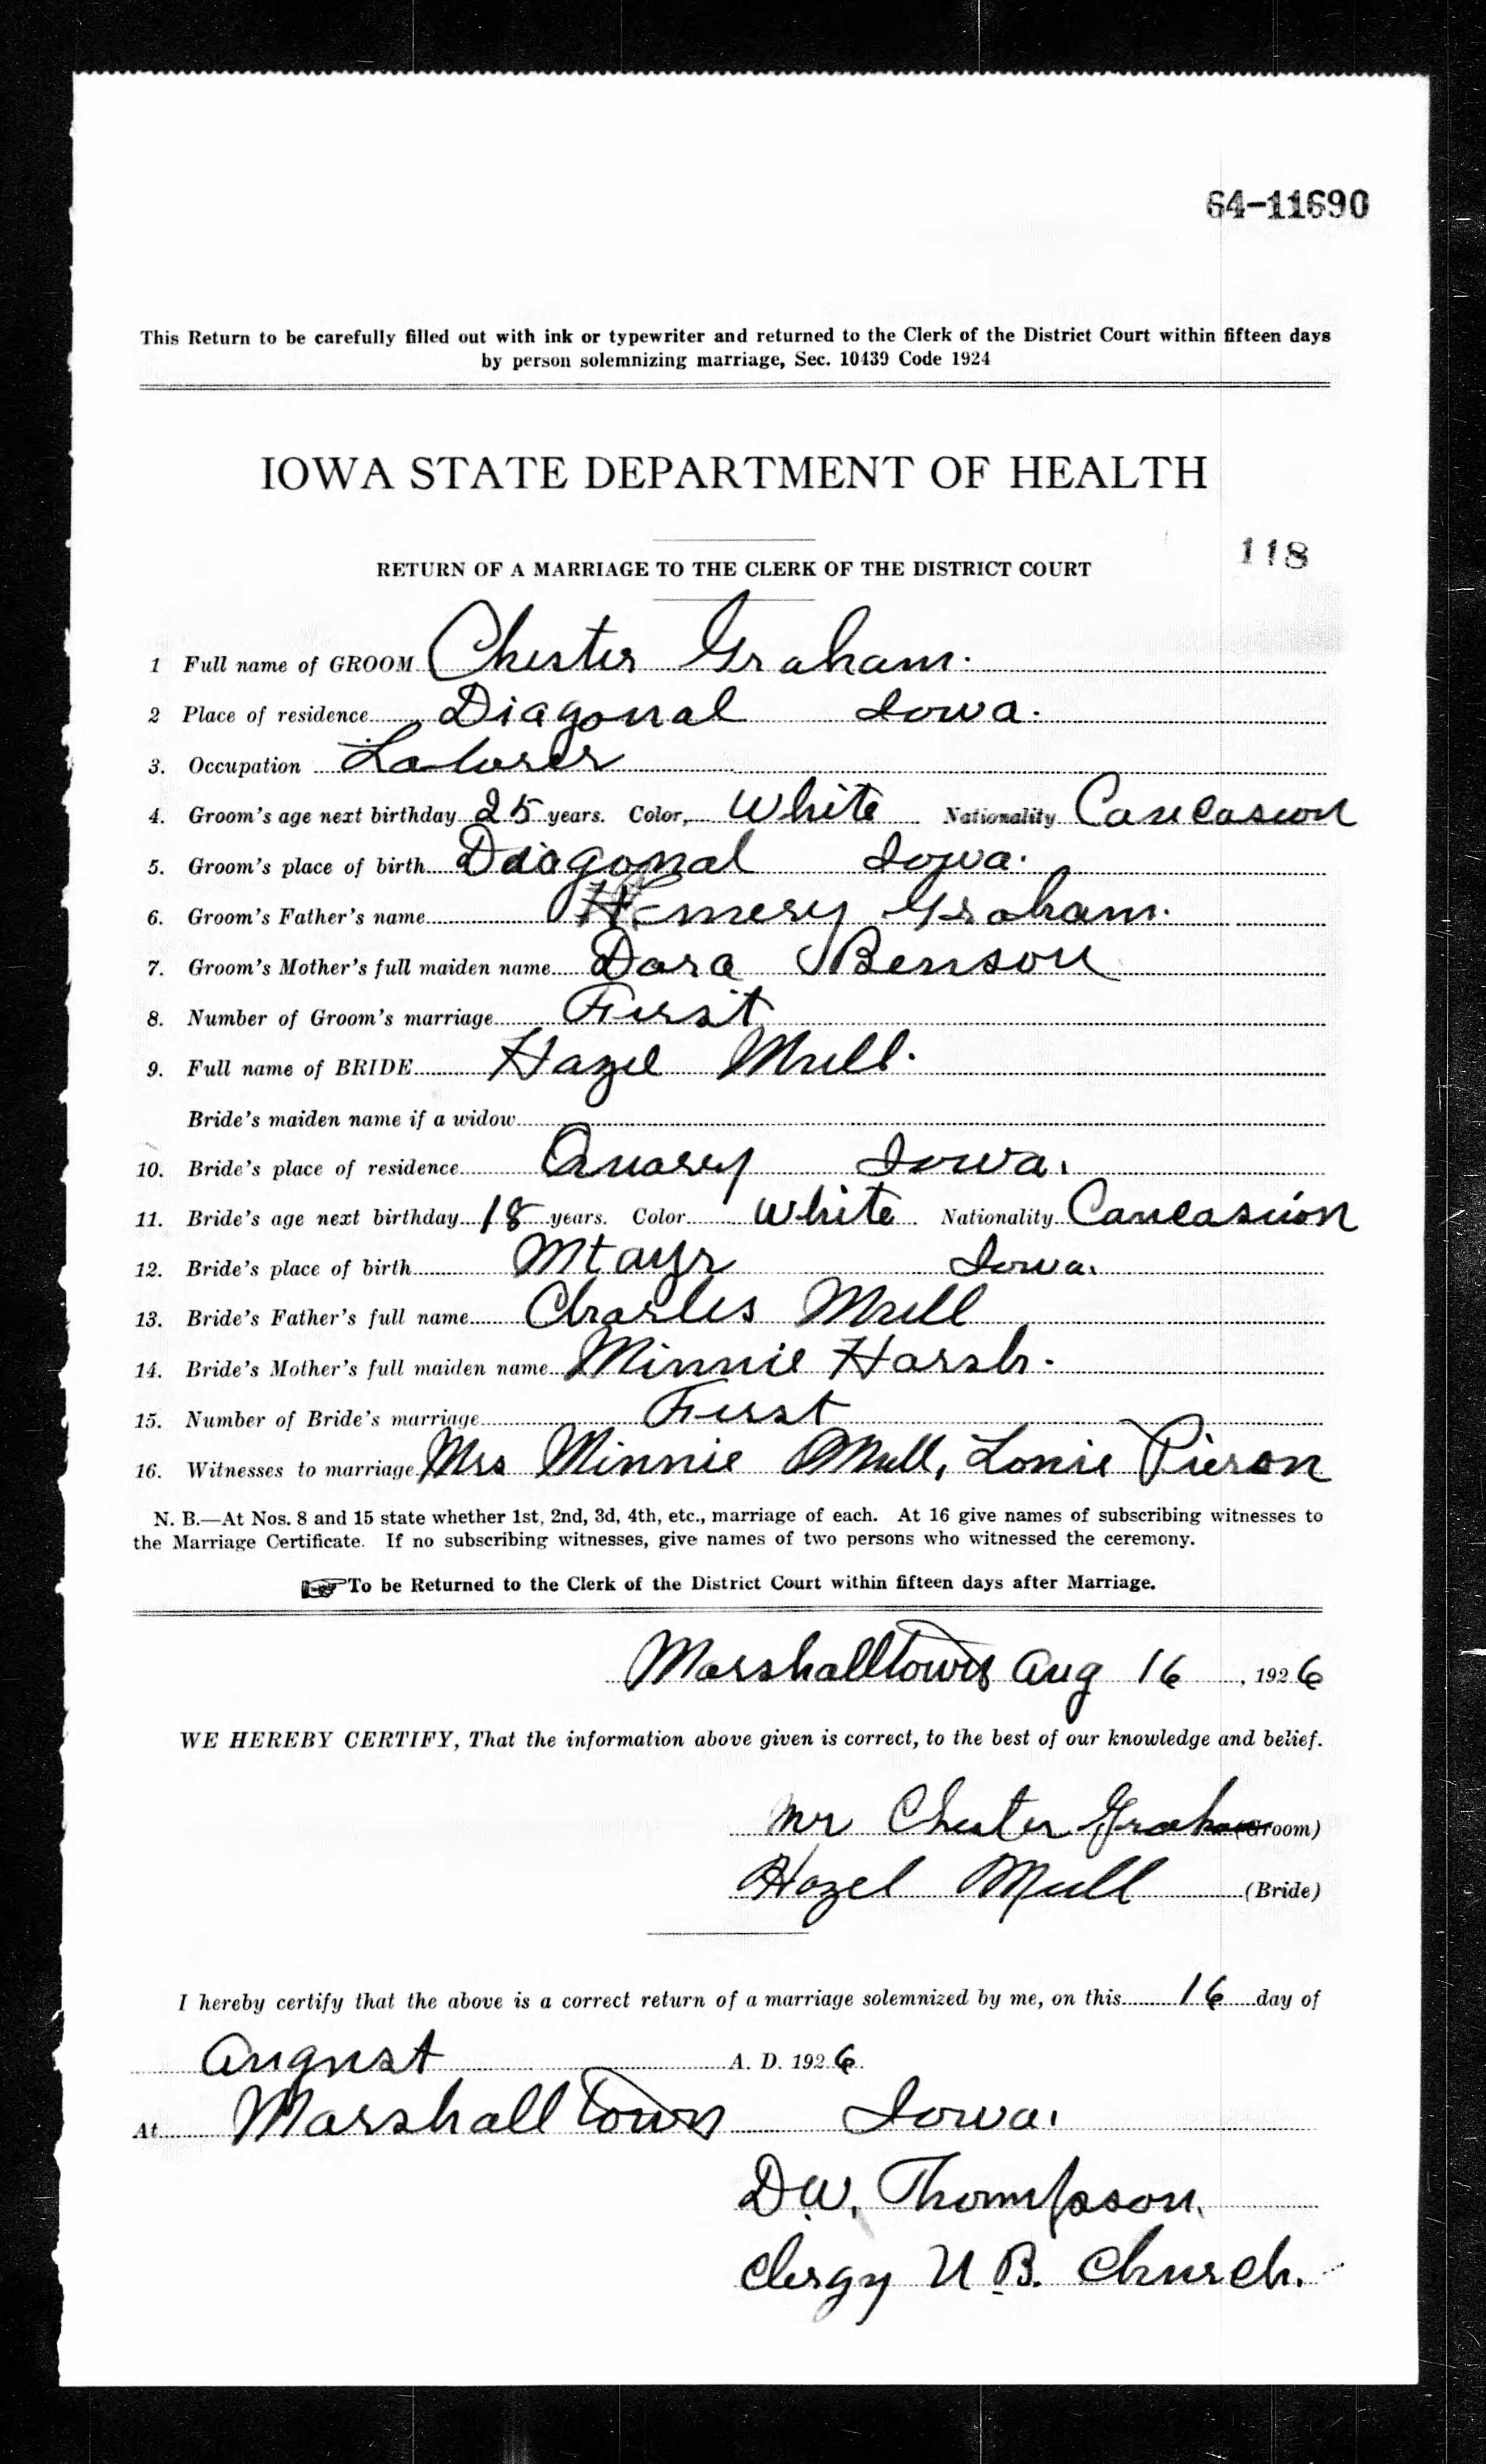 64-11690
This Return to be carefully filled out with ink or typewriter and returned to the Clerk of the District Court within fifteen days
by person solemnizing marriage, Sec. 10439 Code 1924
IOWA STATE DEPARTMENT OF HEALTH
118
RETURN OF A MARRIAGE TO THE CLERK OF THE DISTRICT COURT
1 Full name of GROOM Chester Graham.
2 Place of residence Diagonal Iowa.
3. Occupation Laborer
4. Groom's age next birthday 25 years. Color, White Nationality Caucasion
5. Groom's place of birth Diagonal Iowa.
6. Groom's Father's name Emery Graham.
7. Groom's Mother's full maiden name Dora Benson
8. Number of Groom's marriage First
9. Full name of BRIDE Hazel Mull.
Bride's maiden name if a widow
10. Bride's place of residence Quarry Iowa.
11. Bride's age next birthday 18 years. Color White Nationality Caucasion
12. Bride's place of birth Mt ayr Iowa.
13. Bride's Father's full name Charles Mull
14. Bride's Mother's full maiden name Minnie Harsh.
15. Number of Bride's marriage First
16. Witnesses to marriage Mrs Minnie Mull, Lonie Pierson
N. B.—At Nos. 8 and 15 state whether 1st, 2nd, 3d, 4th, etc., marriage of each. At 16 give names of subscribing witnesses to
the Marriage Certificate. If no subscribing witnesses, give names of two persons who witnessed the ceremony.
To be Returned to the Clerk of the District Court within fifteen days after Marriage.
Marshalltown Aug 16, 1926
WE HEREBY CERTIFY, That the information above given is correct, to the best of our knowledge and belief.
Mr Chester Graham (Groom)
Hazel Mull (Bride)
I hereby certify that the above is a correct return of a marriage solemnized by me, on this 16 day of
August A. D. 1926
At Marshalltown Iowa.
D.W. Thompson.
Clergy U.B. Church.